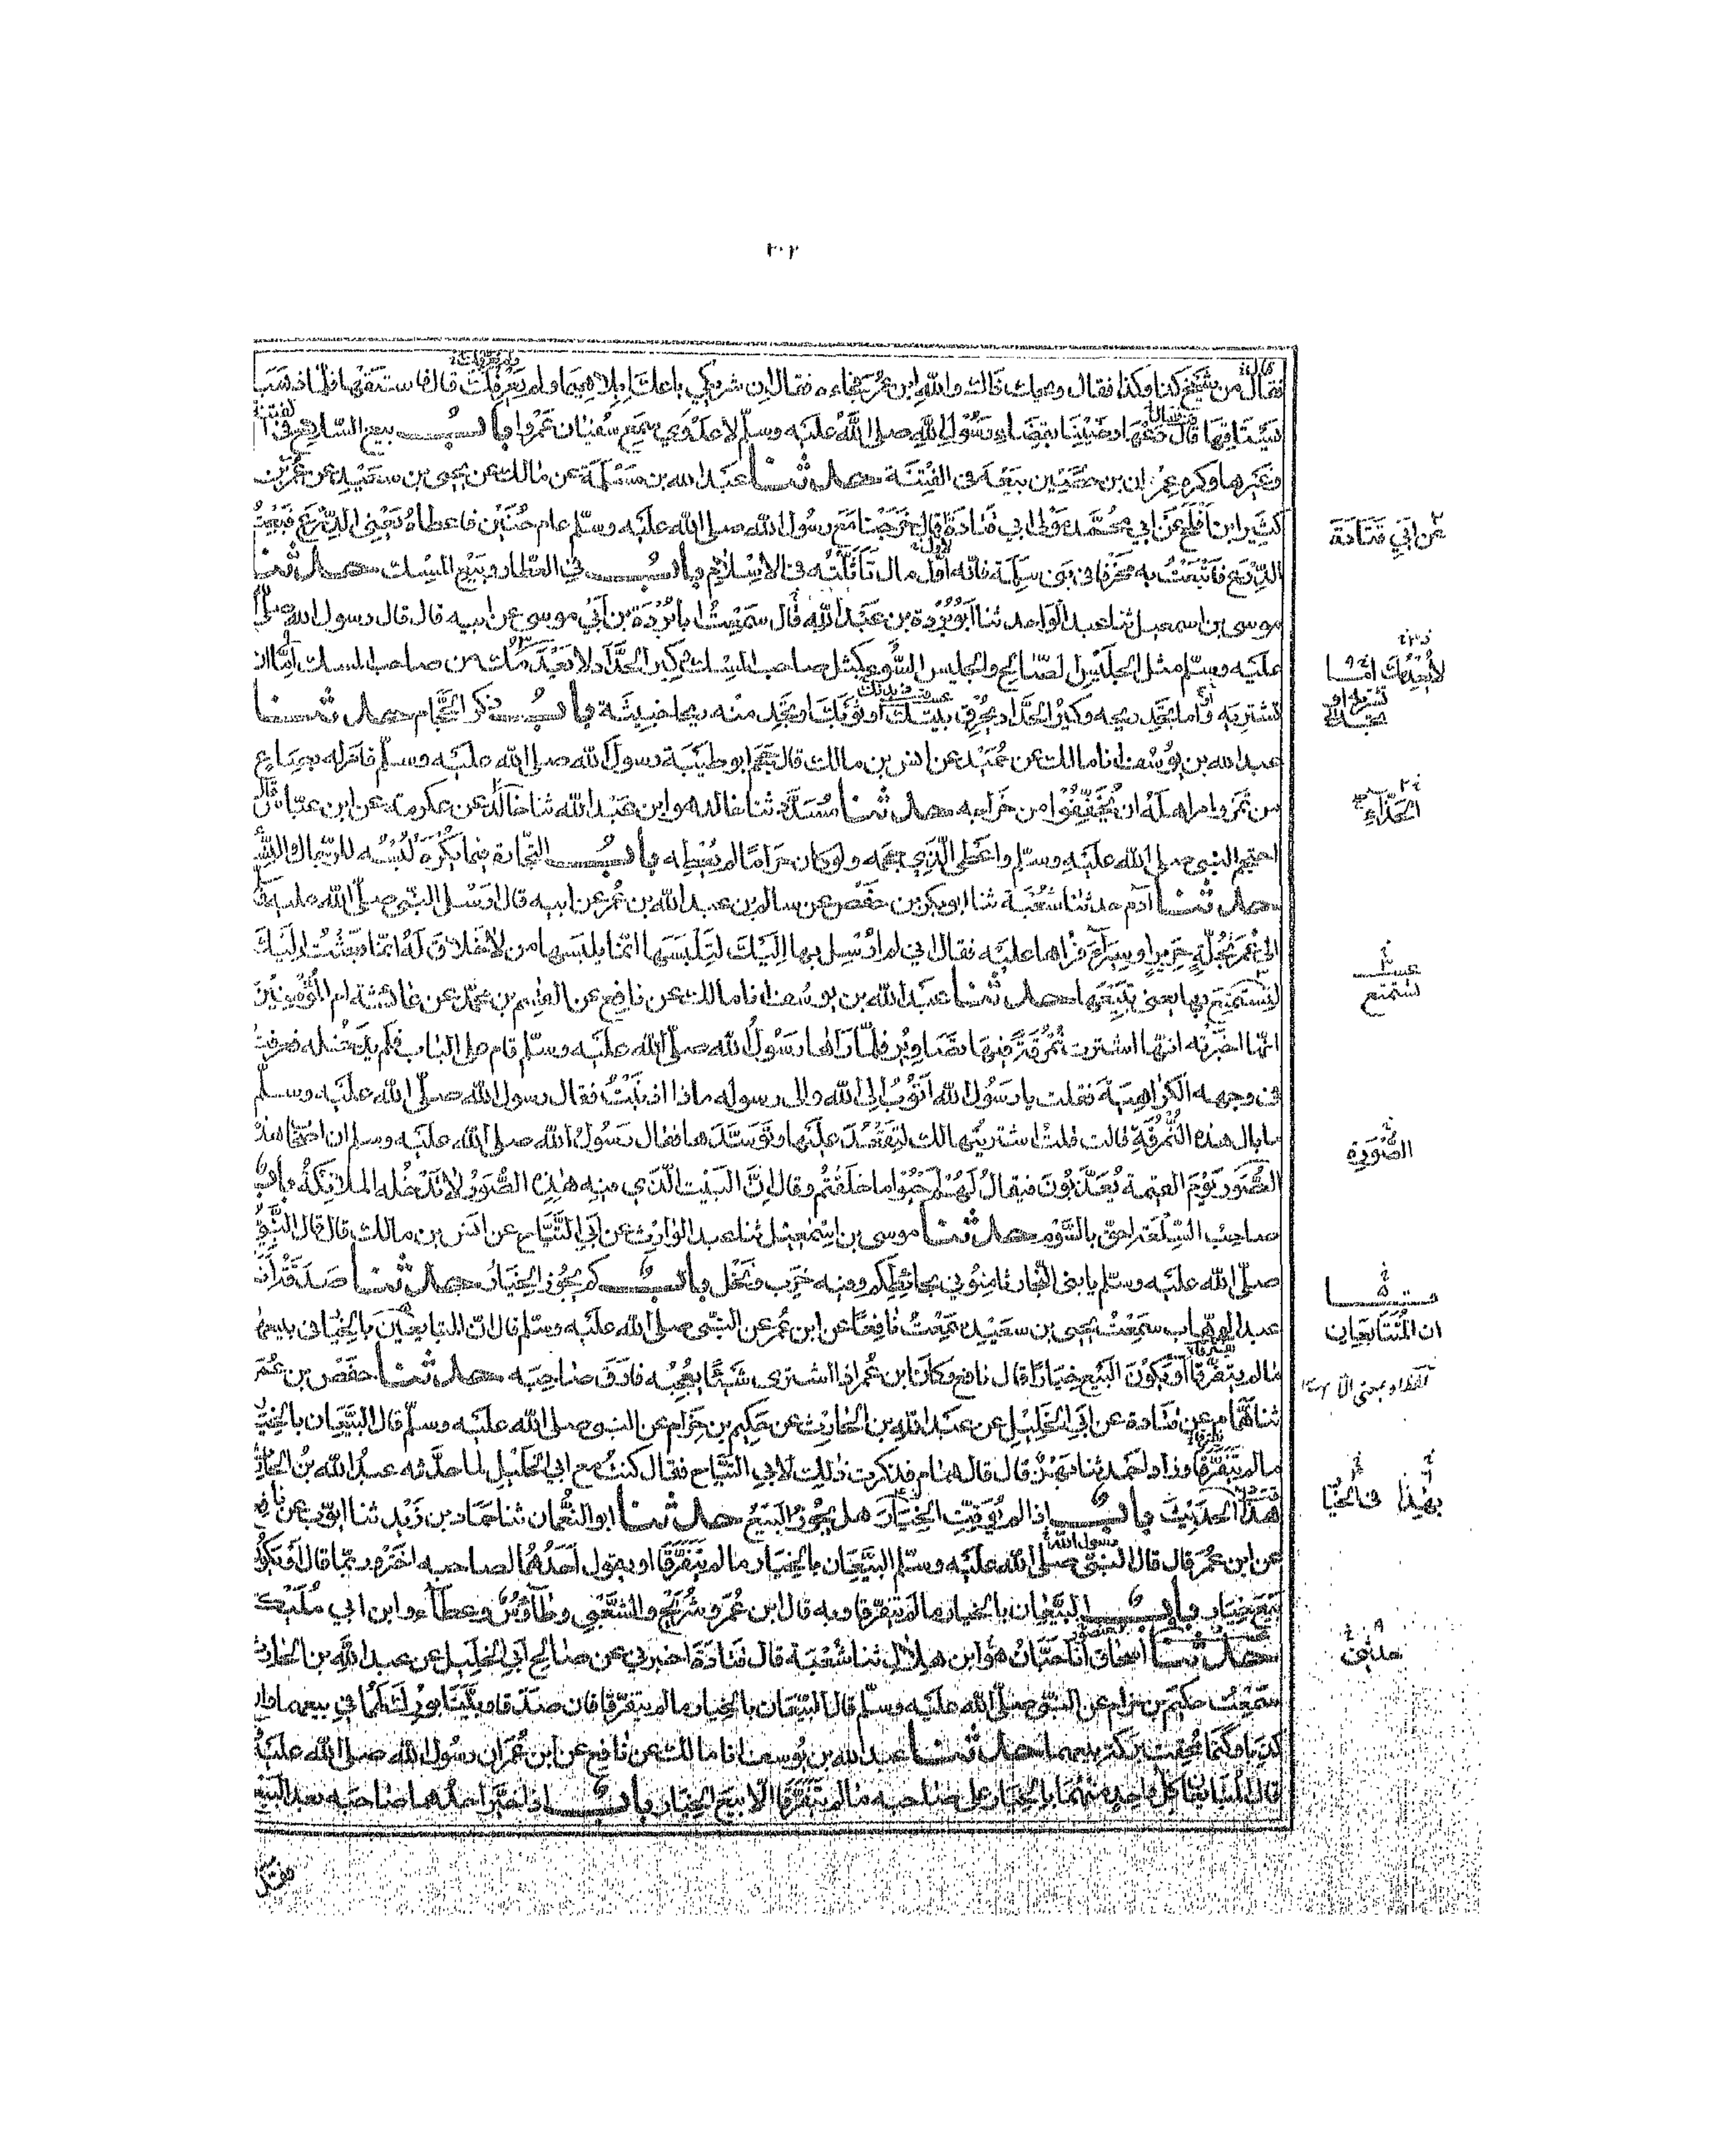 ٢٠٢
فقال من شيخ كذا وكذا فقال ويحك ذاك والله ابن عمر فجاءه فقال ان شريكي باعك ابلا هيما ولم يعرفك قال فاستقها فلما ذهب
يستاقها قال دعها رضينا بقضاء رسول الله صلى الله عليه وسلم لا عدوى سمع سفيان عمروا باب بيع السلاح في الفتنة
وغيرها وكره عمران بن حصين بيعه في الفتنة حدثنا عبد الله بن مسلمة عن مالك عن يحيى بن سعيد عن عمر بن
كثير ابن افلح عن ابي محمد مولى ابي قتادة قال خرجنا مع رسول الله صلى الله عليه وسلم عام حنين فاعطاه يعني الدرع فبعت
عن ابي قتادة
الدرع فابتعت به مخرفا في بني سلمة فانه اول مال تاثلته في الاسلام باب في العطار وبيع المسك حدثنا
موسى بن اسمعيل ثنا عبد الواحد ثنا ابو بردة بن عبد الله قال سمعت ابا بردة بن ابي موسى عن ابيه قال قال رسول الله صلى
عليه وسلم مثل الجليس الصالح والجليس السوء كمثل صاحب المسك وكير الحداد لا يعدمك من صاحب المسك اما ان
تشتريه واما تجد ريحه وكير الحداد يحرق بيتك او ثوبك او تجد منه ريحا خبيثة باب ذكر الحجام حدثنا
عبد الله بن يوسف انا مالك عن حميد عن انس بن مالك قال حجم ابو طيبة رسول الله صلى الله عليه وسلم فامر له بصاع
من تمر وامر اهله ان يخففوا من خراجه حدثنا مسدد ثنا خالد هو ابن عبد الله ثنا خالد عن عكرمة عن ابن عباس قال
الحذاء
احتجم النبي صلى الله عليه وسلم واعطى الذي حجمه ولو كان حراما لم يعطه باب التجارة فيما يكره لبسه للرجال والنساء
حدثنا آدم حدثنا شعبة ثنا ابو بكر بن حفص عن سالم بن عبد الله بن عمر عن ابيه قال ارسل النبي صلى الله عليه وسلم
الى عمر بحلة حرير او سيراء فراها عليه فقال اني لم ارسل بها اليك لتلبسها انما يلبسها من لا خلاق له انما بعثت اليك
لتستمتع بها يعني تبيعها حدثنا عبد الله بن يوسف انا مالك عن نافع عن القسم بن محمد عن عائشة ام المؤمنين
تستمتع
انها اخبرته انها اشترت نمرقة فيها تصاوير فلما راها رسول الله صلى الله عليه وسلم قام على الباب فلم يدخله فعرفت
في وجهه الكراهية فقلت يا رسول الله اتوب الى الله والى رسوله ماذا اذنبت فقال رسول الله صلى الله عليه وسلم
ما بال هذه النمرقة قالت قلت اشتريتها لك لتقعد عليها وتوسدها فقال رسول الله صلى الله عليه وسلم ان اصحاب هذه
الصورة
الصور يوم القيمة يعذبون فيقال لهم احيوا ما خلقتم وقال ان البيت الذي فيه هذه الصور لا تدخله الملائكة باب
صاحب السلعة احق بالسوم حدثنا موسى بن اسمعيل ثنا عبد الوارث عن ابي التياح عن انس بن مالك قال قال النبي
صلى الله عليه وسلم يا بني النجار ثامنوني بحائطكم وفيه خرب ونخل باب كم يجوز الخيار حدثنا صدقة انا
عبد الوهاب سمعت يحيى بن سعيد سمعت نافعا عن ابن عمر عن النبي صلى الله عليه وسلم قال ان المتبايعين بالخيار في بيعهما
ان المتبايعان
ما لم يتفرقا او يكون البيع خيارا قال نافع وكان ابن عمر اذا اشترى شيئا يعجبه فارق صاحبه حدثنا حفص بن عمر
ثنا همام عن قتادة عن ابي الخليل عن عبد الله بن الحارث عن حكيم بن حزام عن النبي صلى الله عليه وسلم قال البيعان بالخيار
ما لم يتفرقا وزاد احمد ثنا بهز قال قال همام فذكرت ذلك لابي التياح فقال كنت مع ابي الخليل لما حدثه عبد الله بن الحارث
هذا الحديث باب اذا لم يوقت الخيار هل يجوز البيع حدثنا ابو النعمان ثنا حماد بن زيد ثنا ايوب عن نافع
بهذا
عن ابن عمر قال قال النبي صلى الله عليه وسلم البيعان بالخيار ما لم يتفرقا او يقول احدهما لصاحبه اختر وربما قال او يكون
بيع خيار باب البيعان بالخيار ما لم يتفرقا وبه قال ابن عمر وشريح والشعبي وطاوس وعطاء وابن ابي مليكة
حدثنا اسحاق انا حبان هو ابن هلال ثنا شعبة قال قتادة اخبرني عن صالح ابي الخليل عن عبد الله بن الحارث
حدثني
سمعت حكيم بن حزام عن النبي صلى الله عليه وسلم قال البيعان بالخيار ما لم يتفرقا فان صدقا وبينا بورك لهما في بيعهما وان
كذبا وكتما محقت بركة بيعهما حدثنا عبد الله بن يوسف انا مالك عن نافع عن ابن عمر ان رسول الله صلى الله عليه
قال المتبايعان كل واحد منهما بالخيار على صاحبه ما لم يتفرقا الا بيع الخيار باب اذا خير احدهما صاحبه بعد البيع
فقد